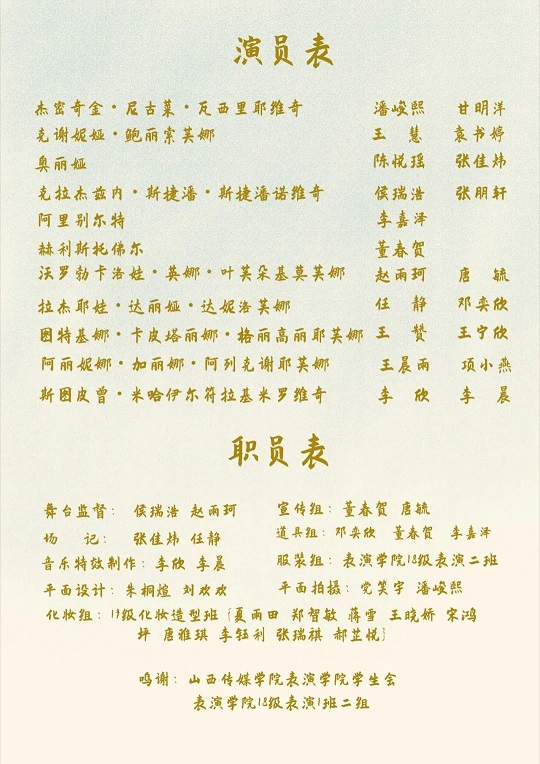 演员表
杰密奇金·尼古莱·瓦西里耶维奇 潘峻熙 甘明洋
克谢妮娅·鲍丽索芙娜 王 慧 袁书婷
奥丽娅 陈悦瑶 张佳炜
克拉杰兹内·斯捷潘·斯捷潘诺维奇 侯瑞浩 张朋轩
阿里别尔特 李嘉泽
赫利斯托佛尔 董春贺
沃罗勃卡洛娃·英娜·叶芙朵基莫芙娜 赵雨珂 唐 毓
拉杰耶娃·达丽娅·达妮洛芙娜 任 静 邓奕欣
图特基娜·卡皮塔丽娜·格丽高丽耶芙娜 王 赞 王宁欣
阿丽妮娜·加丽娜·阿列克谢耶芙娜 王晨雨 项小燕
斯图皮曾·米哈伊尔符拉基米罗维奇 李 欣 李 晨
职员表
舞台监督: 侯瑞浩 赵雨珂 宣传组: 董春贺 唐毓
场 记: 张佳炜 任静 道具组: 邓奕欣 董春贺 李嘉泽
音乐特效制作: 李欣 李晨 服装组: 表演学院18级表演二班
平面设计: 朱桐煊 刘欢欢 平面拍摄: 党笑宇 潘峻熙
化妆组: 19级化妆造型班 {夏雨田 郑智敏 蒋雪 王晓娇 宋鸿
坪 唐雅琪 李钰利 张瑞祺 郝芷悦}
鸣谢: 山西传媒学院表演学院学生会
表演学院18级表演1班二组